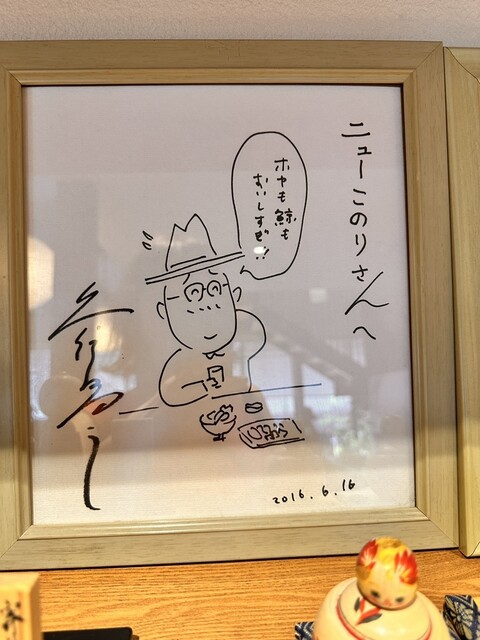 ニューこのりさんへ
ホヤも鯨も
おいしすぎ!!
2016.6.16